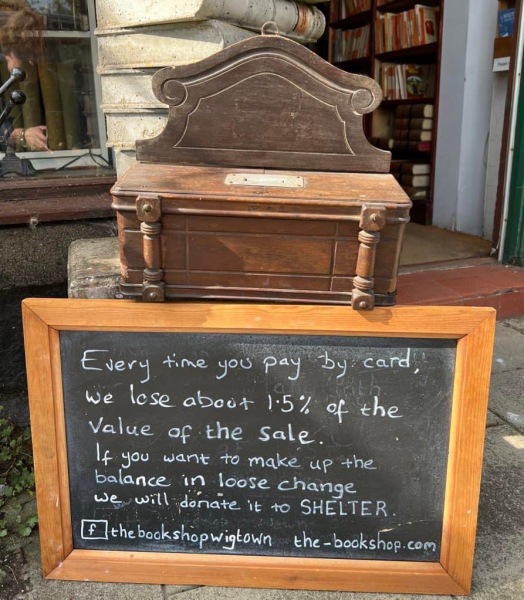 Every time you pay by card,
we lose about 1.5% of the
value of the sale.
If you want to make up the
balance in loose change
we will donate it to SHELTER.
f thebookshopwigtown the-bookshop.com